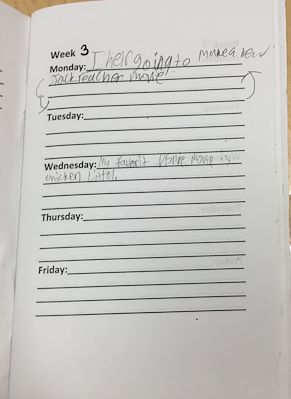 Week 3
Monday: I her going to make a new
Jack reacher movie
Tuesday:
Wednesday: My favorit movie is
chicken littel.
Thursday:
Friday: